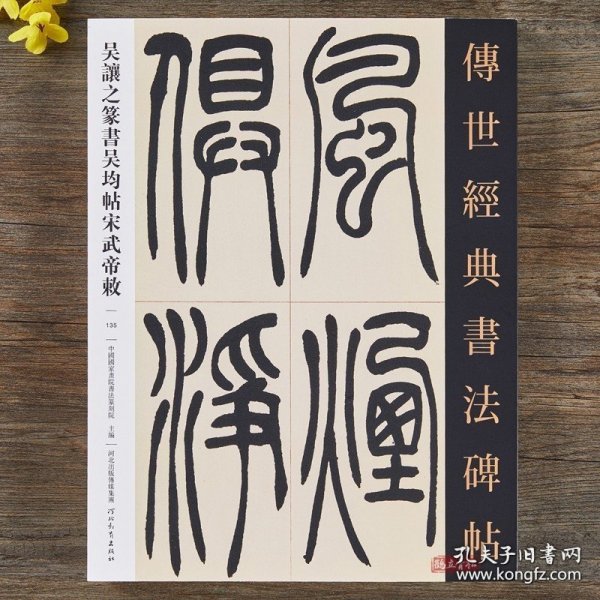 傳世經典書法碑帖
風煙
俱淨
吴讓之篆書吴均帖宋武帝敕
135
中國國家畫院書法篆刻院 主編
河北出版傳媒集團 河北教育出版社
孔夫子旧书网
www.kongfz.com